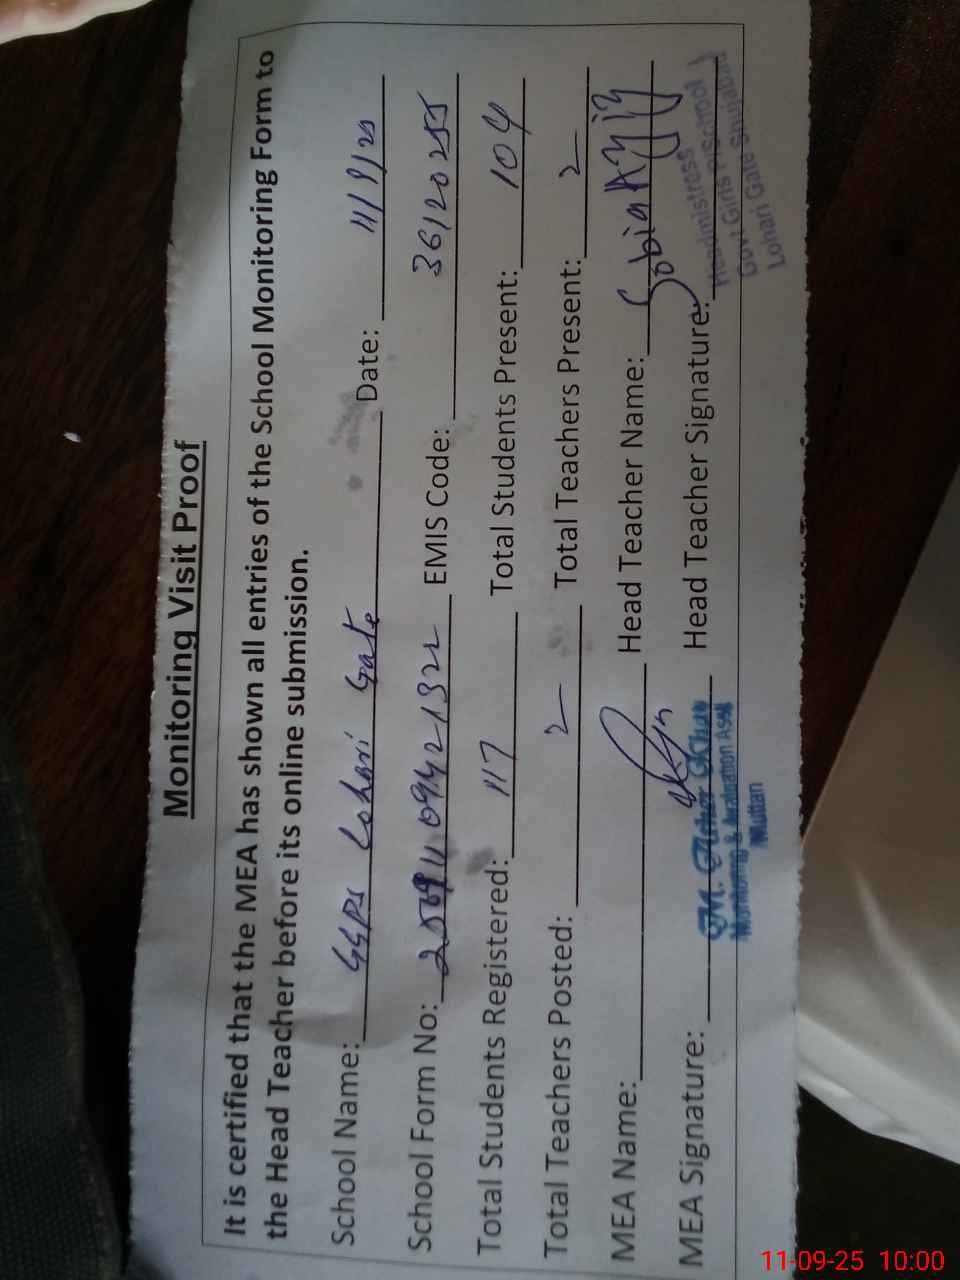 Monitoring Visit Proof
It is certified that the MEA has shown all entries of the School Monitoring Form to
the Head Teacher before its online submission.
School Name: GGPS Lohari Gate Date: 11/9/25
School Form No: EMIS Code: 36120255
Total Students Registered: 117 Total Students Present: 104
Total Teachers Posted: 2 Total Teachers Present: 2
MEA Name: Head Teacher Name: Sobia Aziz
MEA Signature: Head Teacher Signature:
Headmistress
Govt Girls P/School
Lohari Gate Shujabad
Monitoring & Evaluation Asstt
Multan
11-09-25 10:00